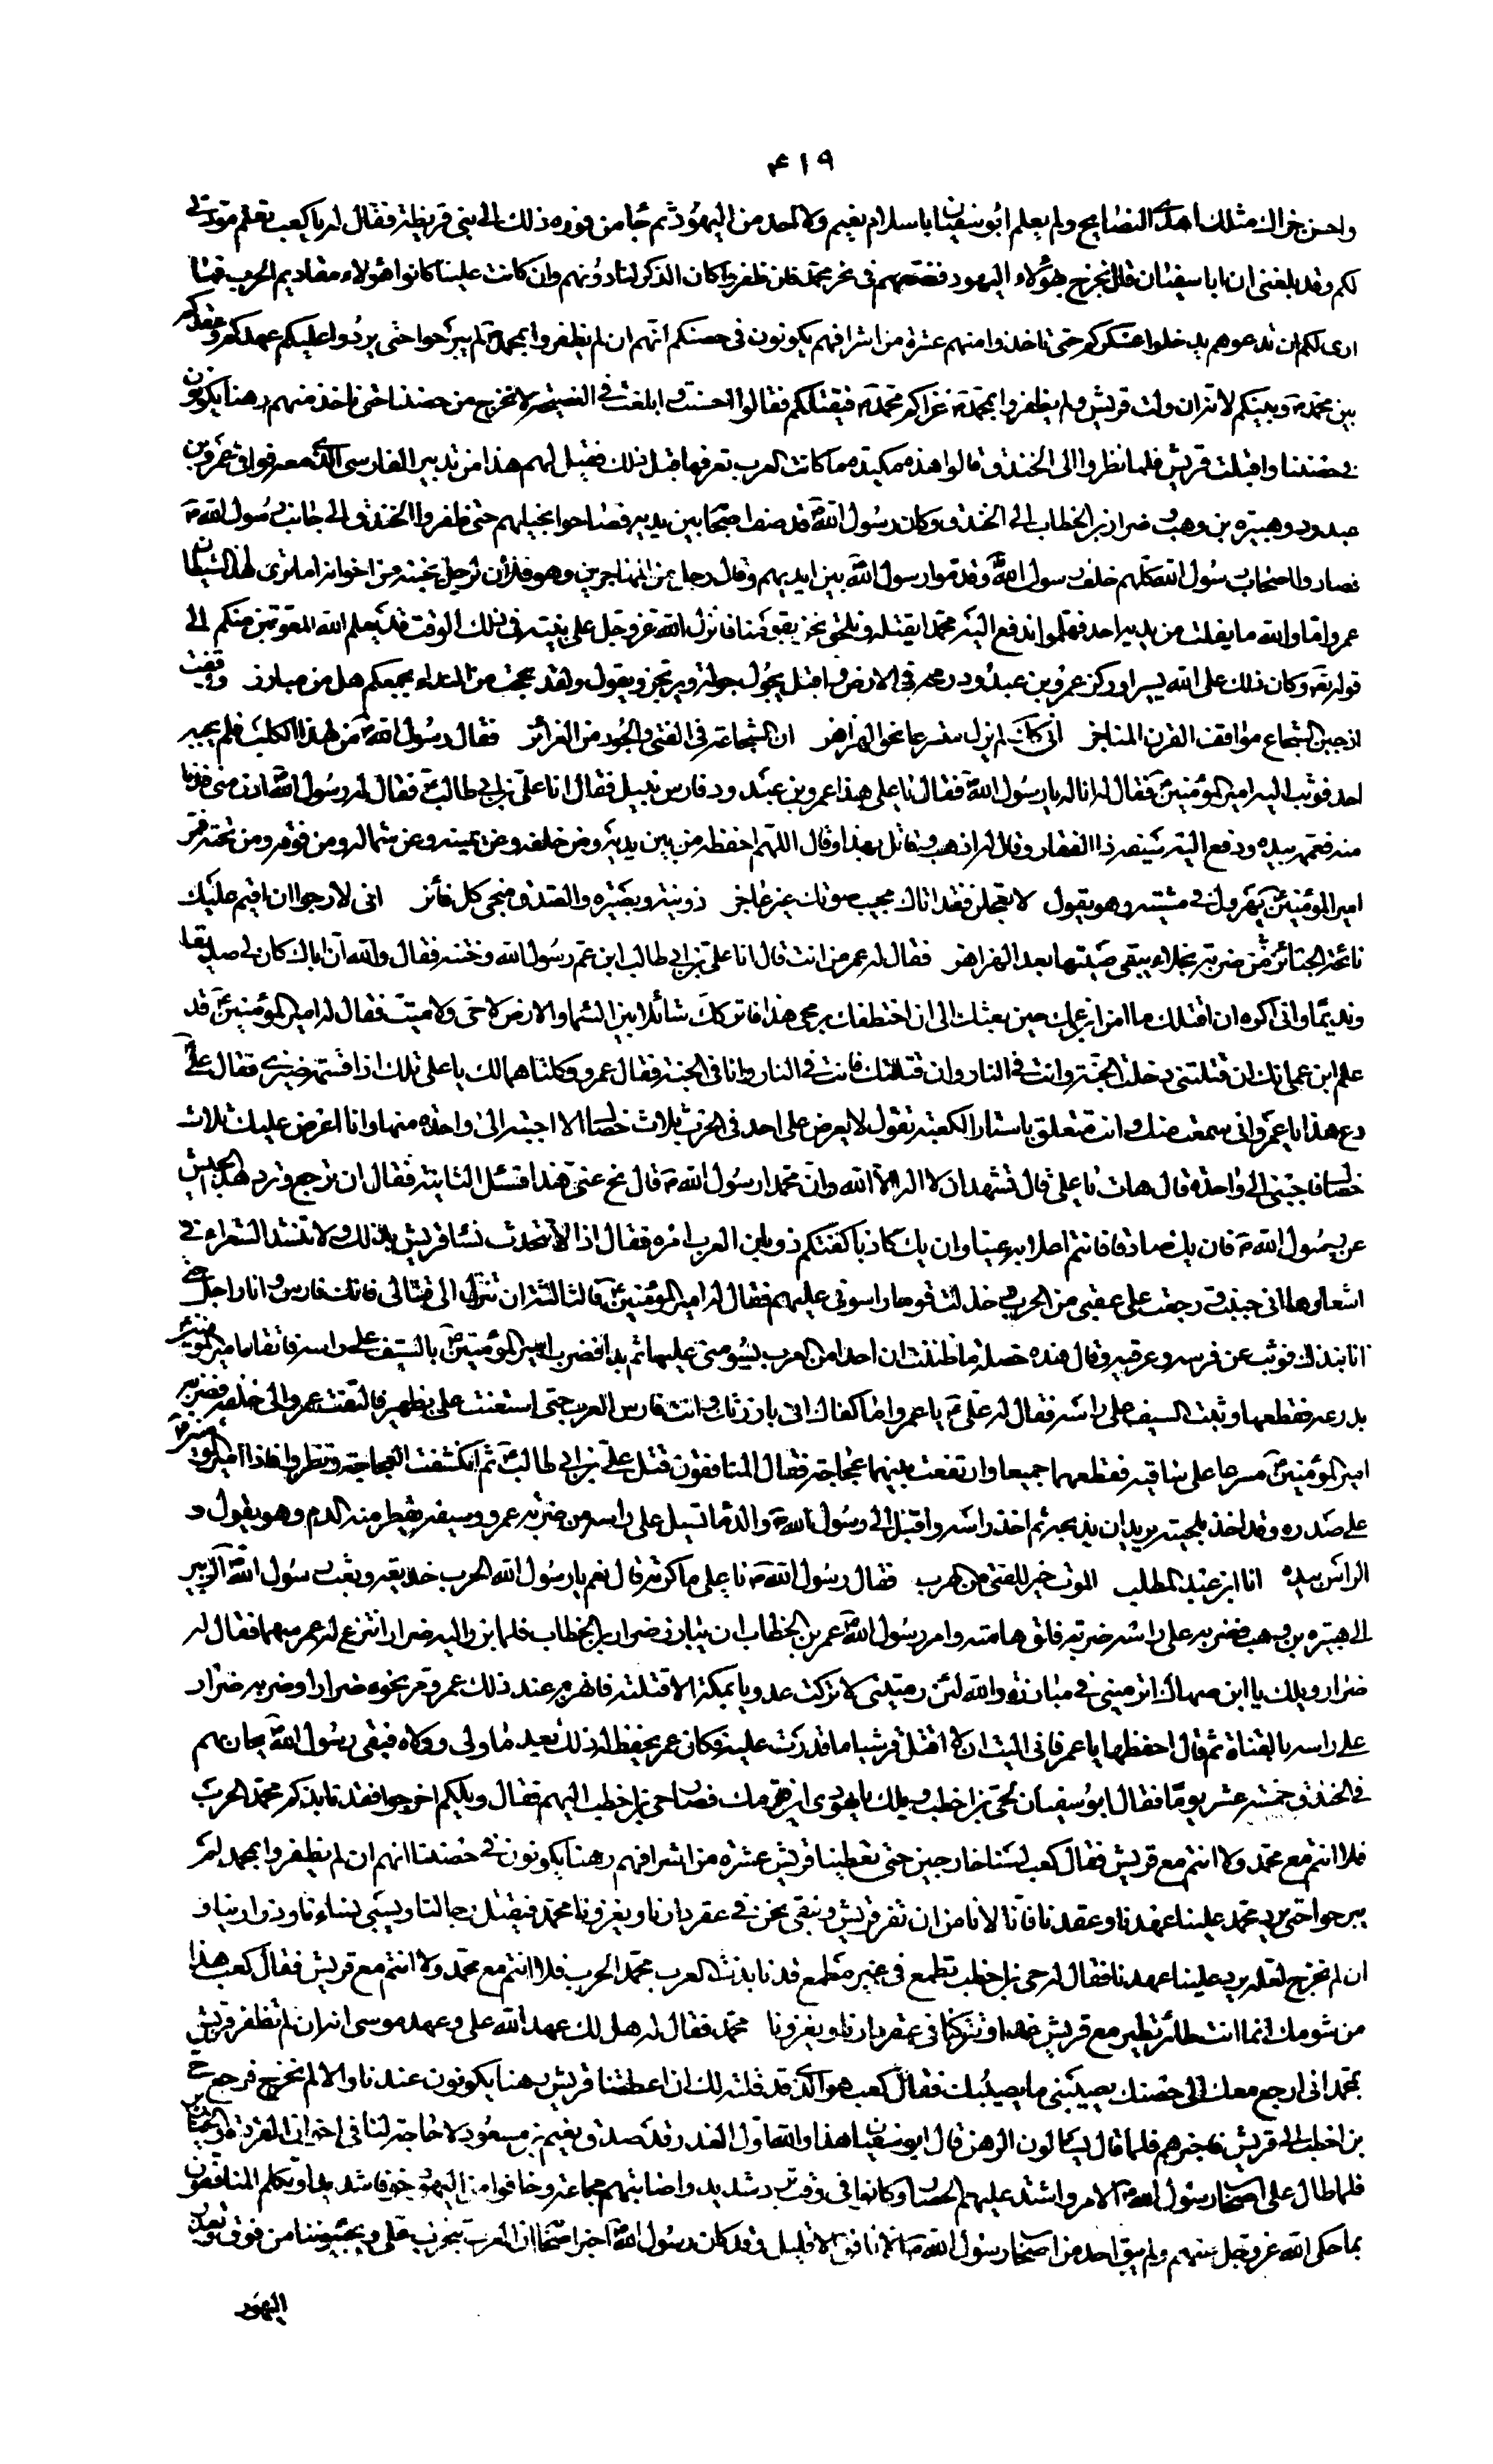 ٤١٩
واحسن جزاك مثلك اهدى النصايح ولم يعلم ابو سفيان باسلام نعيم ولا احد من اليهود ثم جا من فوره ذلك الى بنى قريظة فقال له يا كعب تعلم مودتى
لكم وقد بلغنى ان ابا سفيان قال نخرج هؤلاء اليهود فنضعهم فى نحر محمد فان ظفروا كان الذكر لنا دونهم وان كانت علينا كانوا هؤلاء مقاديم الحرب فما
ارى لكم ان تدعوهم يدخلوا عسكركم حتى تاخذوا منهم عشرة من اشرافهم يكونون فى حصنكم انهم ان لم يظفروا بمحمد لم يبرحوا حتى يردوا عليكم عهدكم وعقدكم
بين محمد ص وبينكم لانه ان ولت قريش ولم يظفروا بمحمد ص غزاكم محمد ص فيقتلكم فقالوا احسنت وابلغت فى النصيحة لا نخرج من حصننا حتى ناخذ منهم رهنا يكونون
فى حصننا واقبلت قريش فلما نظروا الى الخندق قالوا هذه مكيدة ما كانت العرب تعرفها قبل ذلك فقيل لهم هذا من تدبير الفارسى الذى معه فوافى عمرو بن
عبد ود وهبيرة بن وهب وضرار بن الخطاب الى الخندق وكان رسول الله ص قد صف اصحابه بين يديه فصاحوا بخيلهم حتى ظفروا الخندق الى جانب رسول الله ص
فصاروا اصحاب رسول الله كلهم خلف رسول الله ص وقدموا رسول الله ص بين ايديهم وقال رجل من المهاجرين وهو فلان لرجل بجنبه من اخوانه اما ترى هذا الشيطان
عمروا اما والله ما يفلت من يديه احد فهلموا ندفع اليه محمدا ليقتله ونلحق نحن بقومنا فانزل الله عز وجل على نبيه فى ذلك الوقت قد يعلم الله المعوقين منكم الى
قوله تعالى وكان ذلك على الله يسيرا وركز عمرو بن عبد ود رمحه فى الارض واقبل يجول جولة ويرتجز ويقول ولقد بححت من النداء بجمعكم هل من مبارز ووقفت
اذ جبن الشجاع مواقف القرن المناجز انى كذلك لم ازل متسرعا نحو الهزاهز ان الشجاعة فى الفتى والجود من الغرائز فقال رسول الله ص من لهذا الكلب فلم يجبه
احد فوثب اليه امير المؤمنين ع فقال له انا له يا رسول الله فقال يا على هذا عمرو بن عبد ود فارس يليل فقال انا على بن ابى طالب ع فقال له رسول الله ص ادن منى فدنا
منه فعممه بيده ودفع اليه سيفه ذا الفقار وقال له اذهب وقاتل بهذا وقال اللهم احفظه من بين يديه ومن خلفه وعن يمينه وعن شماله ومن فوقه ومن تحته فمر
امير المؤمنين ع يهرول فى مشيته وهو يقول لا تعجلن فقد اتاك مجيب صوتك غير عاجز ذو نية وبصيرة والصدق منجى كل فائز انى لارجوا ان اقيم عليك
نائحة الجنائز من ضربة نجلاء يبقى صيتها بعد الهزاهز فقال له عمرو من انت قال انا على بن ابى طالب ابن عم رسول الله وختنه فقال والله ان اباك كان لى صديقا
ونديما وانى اكره ان اقتلك ما امن ابن عمك حين بعثك الى ان اختطفك برمحى هذا فاتركك شائلا بين السماء والارض لا حى ولا ميت فقال له امير المؤمنين ع قد
علم ابن عمى انك ان قتلتنى دخلت الجنة وانت فى النار وان قتلتك فانت فى النار وانا فى الجنة فقال عمرو وكلتاهما لك يا على تلك اذا قسمة ضيزى فقال على ع
دع هذا يا عمرو انى سمعت منك وانت متعلق باستار الكعبة تقول لا يعرض على احد فى الحرب ثلاث خصال الا اجبته الى واحدة منها وانا اعرض عليك ثلاث
خصال فاجبنى الى واحدة قال هات يا على قال تشهد ان لا اله الا الله وان محمدا رسول الله ص قال نح عنى هذا فسئل الثانية فقال ان ترجع وترد هذا الجيش
عن رسول الله ص فان يك صادقا فانتم اعلى به عينا وان يك كاذبا كفتكم ذؤبان العرب امره فقال اذا لا تتحدث نساء قريش بذلك ولا تنشد الشعراء فى
اشعارها انى جبنت ورجعت على عقبى من الحرب وخذلت قوما راسونى عليهم فقال له امير المؤمنين ع فالثالثة ان تنزل الى قتالى فانك فارس وانا راجل حتى
انابذك فوثب عن فرسه وعرقبه وقال هذه خصلة ما ظننت ان احدا من العرب يسومنى عليها ثم بدا فضرب امير المؤمنين ص بالسيف على راسه فاتقاه امير المؤمنين ع
بدرقته فقطعها وثبت السيف على راسه فقال له على ع يا عمرو اما كفاك انى بارزتك وانت فارس العرب حتى استعنت على بظهير فالتفت عمرو الى خلفه فضربه
امير المؤمنين ع مسرعا على ساقيه فقطعهما جميعا وارتفعت بينهما عجاجة فقال المنافقون قتل على بن ابى طالب ع ثم انكشفت العجاجة ونظروا فاذا امير المؤمنين ع
على صدره وقد اخذ بلحيته يريد ان يذبحه ثم اخذ راسه واقبل الى رسول الله ص والدماء تسيل على راسه من ضربة عمرو وسيفه يقطر منه الدم وهو يقول و
الراس بيده انا ابن عبد المطلب الموت خير للفتى من الهرب فقال رسول الله ص يا على ما كرته قال نعم يا رسول الله الحرب خديعة وبعث رسول الله ص الزبير
الى هبيرة بن وهب فضربه على راسه ضربة فلق هامته وامر رسول الله ص عمر بن الخطاب ان يبارز ضرار بن الخطاب فلما برز اليه ضرار انتزع له عمر سهما فقال له
ضرار ويلك يا ابن صهاك اترمينى فى مبارزة والله لئن رميتنى لا تركت عدويا بمكة الا قتلته فانهزم عند ذلك عمر ومر نحوه ضرار وضربه ضرار
على راسه بالقناة ثم قال احفظها يا عمر فانى اليت ان لا اقتل قرشيا ما قدرت عليه فكان عمر يحفظ له ذلك بعد ما ولى وولاه فبقى رسول الله ص يحاربهم
فى الخندق خمسة عشر يوما فقال ابو سفيان لحى بن اخطب ويلك يا يهودى اين قومك فصار حى بن اخطب اليهم فقال ويلكم اخرجوا فقد نابذكم محمد الحرب
فلا انتم مع محمد ولا انتم مع قريش فقال كعب لسنا خارجين حتى تعطينا قريش عشرة من اشرافهم رهنا يكونون فى حصننا انهم ان لم يظفروا بمحمد لم
يبرحوا حتى يرد محمد علينا عهدنا وعقدنا فانا لا نامن ان تفر قريش ونبقى نحن فى عقر دارنا ويغزونا محمد فيقتل رجالنا ويسبى نساءنا وذرارينا و
ان لم نخرج لعله يرد علينا عهدنا فقال له حى بن اخطب تطمع فى غير مطمع قد نابذت العرب محمدا الحرب فلا انتم مع محمد ولا انتم مع قريش فقال كعب هذا
من شومك انما انت طائر تطير مع قريش غدا وتتركنا فى عقر دارنا ويغزونا محمد فقال له هل لك عهد الله على وعهد موسى انه ان لم تظفر قريش
بمحمد انى ارجع معك الى حصنك يصيبنى ما يصيبك فقال كعب هو الذى قد قلته لك ان اعطتنا قريش رهنا يكونون عندنا والا لم نخرج فرجع حى
بن اخطب الى قريش فاخبرهم فلما قال يسالون الرهن قال ابو سفيان هذا والله اول الغدر قد صدق نعيم بن مسعود لا حاجة لنا فى اخوان القردة والخنازير
فلما طال على اصحاب رسول الله ص الامر واشتد عليهم الحصار وكانوا فى وقت برد شديد واصابتهم مجاعة وخافوا من اليهود خوفا شديدا وتكلم المنافقون
بما حكى الله عز وجل عنهم ولم يبق احد من اصحاب رسول الله ص الا نافق الا قليل وقد كان رسول الله ص اخبر اصحابه ان العرب تتحزب على ويجيئوننا من فوق وتغدر
اليهود